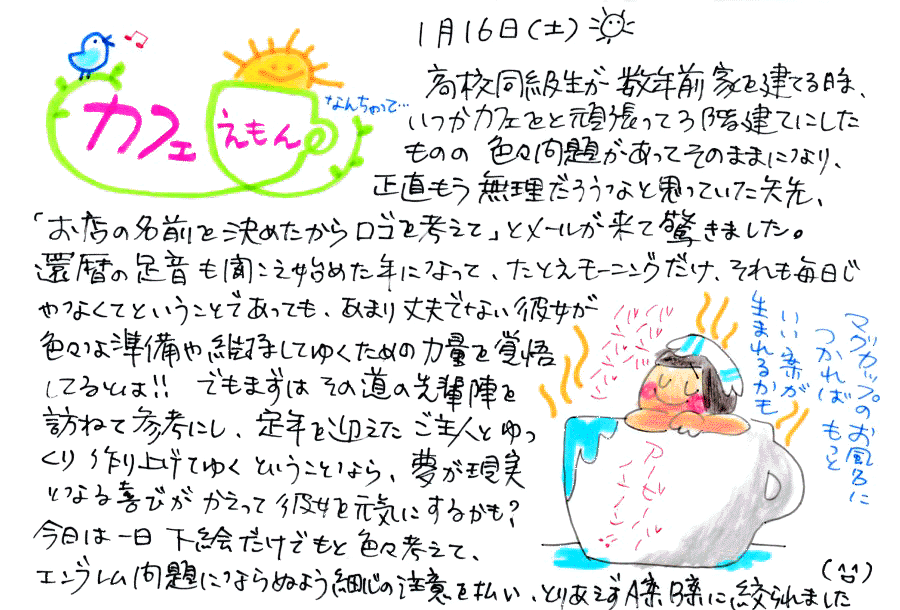 1月16日(土)
カフェ
えもん
なんちゃって…
高校同級生が数年前家を建てる時、
いつかカフェをと頑張って3階建てにした
ものの 色々問題があってそのままになり、
正直もう無理だろうなと思っていた矢先、
「お店の名前を決めたからロゴを考えて」とメールが来て驚きました。
還暦の足音も聞こえ始めた年になって、たとえモーニングだけ、それも毎日じ
ゃなくてということであっても、あまり丈夫でない彼女が
色々な準備や維持してゆくための力量を覚悟
してるとは!! でもまずは その道の先輩陣を
訪ねて参考にし、定年を迎えたご主人とゆっ
くり作り上げてゆくということなら、夢が現実
になる喜びが かえって彼女を元気にするかも?
今日は一日 下絵だけでもと色々考えて、
エンブレム問題にならぬよう細心の注意を払い、とりあえずA案B案に絞られました
マグカップのお風呂に
つかれば もっと
いい案が
生まれるかも